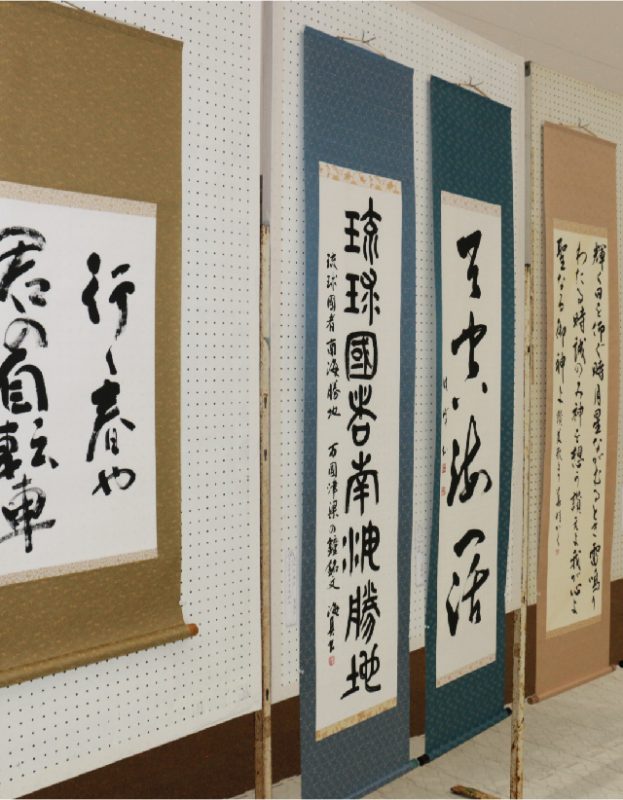 行く春や
君の自転車
琉球國者南海勝地
琉球國者南海勝地 万国津梁の鐘銘文
天空海闊
輝く日を仰ぐ時月星ながむるとき雷鳴り
わたる時誠のみ神を想う讃えよ我が心よ
聖なる御神を